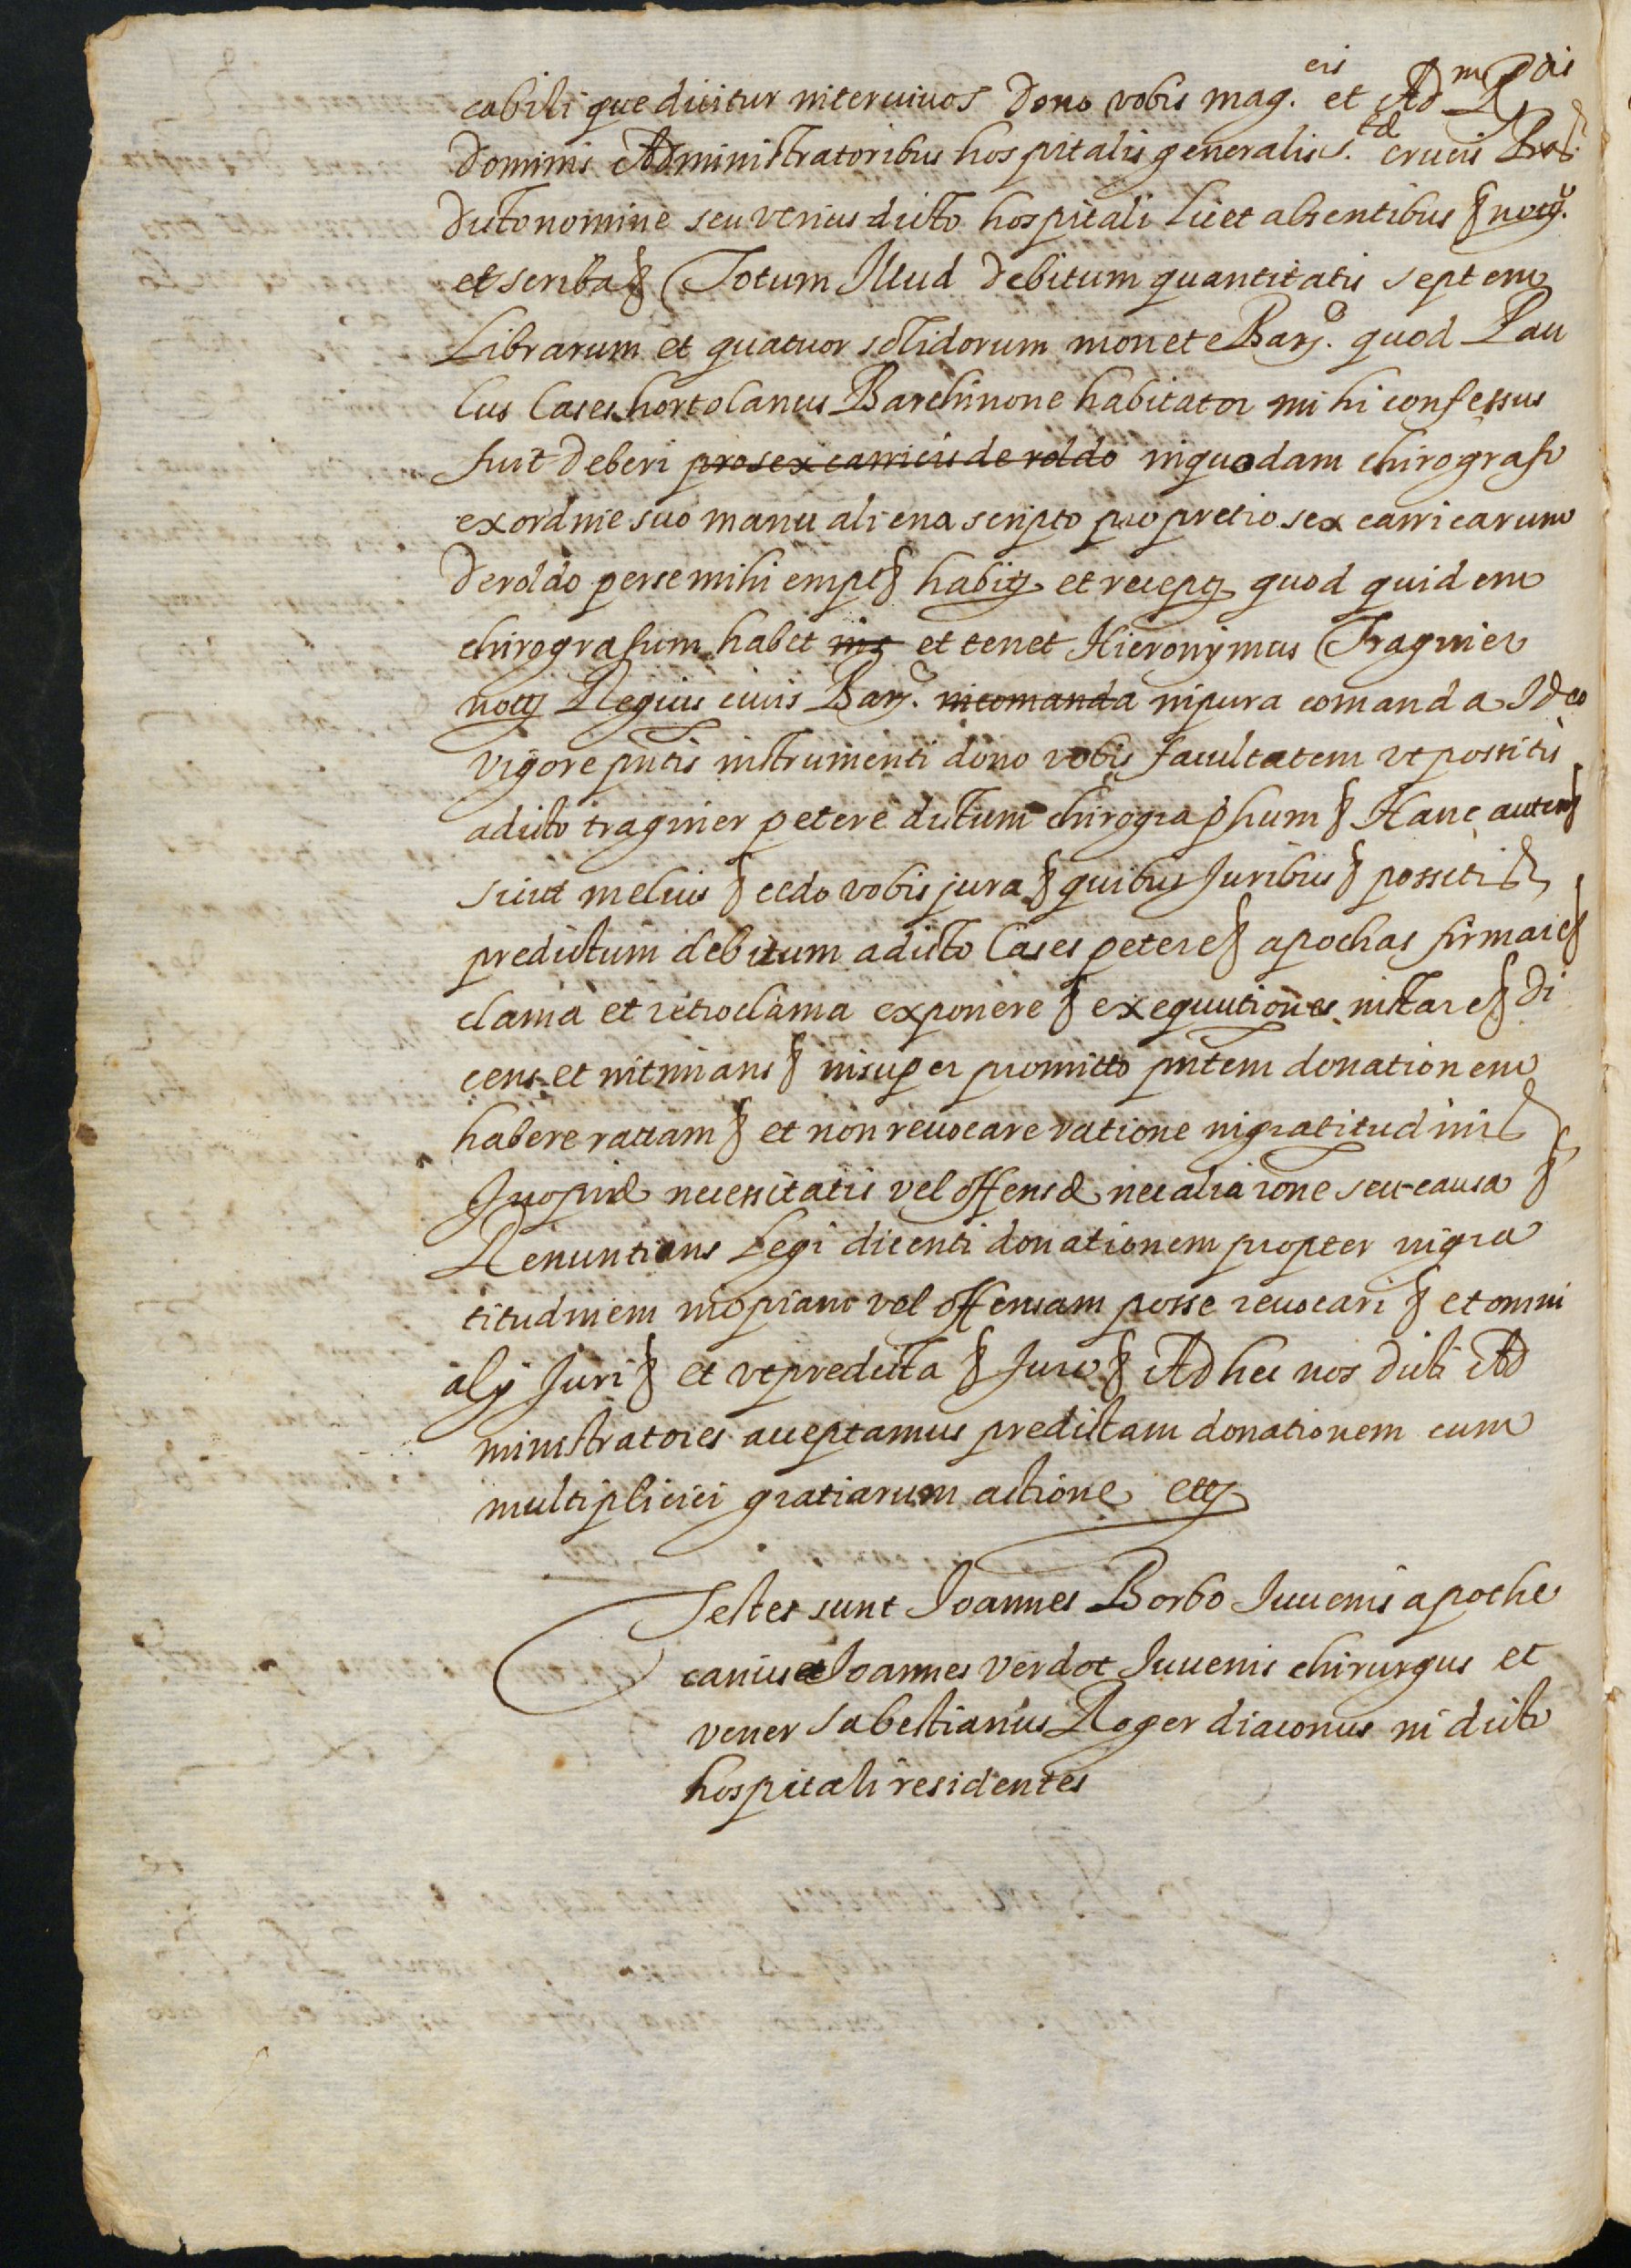 cabili que dicitur inter vivos Dono vobis mag.cis et Adm Rdis
Dominis Administratoribus hospitalis generalis S.te crucis
Dicto nomine seu verius dicto hospitali licet absentibus § noty.
et scriba § Totum Illud Debitum quantitatis septem
Librarum et quatuor solidorum monete Barne. quod Pau
lus Cases hortolanus Barchinone habitator mihi confessus
fuit Deberi pro sex carricis de roldo in quodam chirografo
ex ordine suo manu aliena scripto pro pretio sex carricarum
De roldo per se mihi empt § habitz et receptz quod quidem
chirografum habet ins et tenet Hieronymus Traginer
noty Regius civis Barne. in comanda in pura comanda Ideo
vigore pntis instrumenti dono vobis facultatem vt possitis
a dicto traginer petere dictum chirographum § Hanc autem §
sicut melius § cedo vobis jura § quibus Juribus § possitis §
predictum debitum a dicto Cases petere § apochas firmare §
clama et retroclama exponere § exequutiones instare § Di
cens et intimans § insuper promitto pntem donationem
habere rattam § et non revocare ratione ingratitudinis §
Inopiæ necessitatis vel offensæ nec alia rone seu causa §
Renuntians Legi dicenti donationem propter ingra
titudinem inopiam vel offensam posse revocari § et omni
alij Juri § et vt predicta § Juro § Ad hec nos dicti Ad
ministratores acceptamus predictam donationem cum
multiplicici gratiarum actione etz
Testes sunt Joannes Borbo Juvenis apothe
carius et Joannes verdot Juvenis chirurgus et
vener Sabestianus Roger diaconus in dicto
hospitali residentes